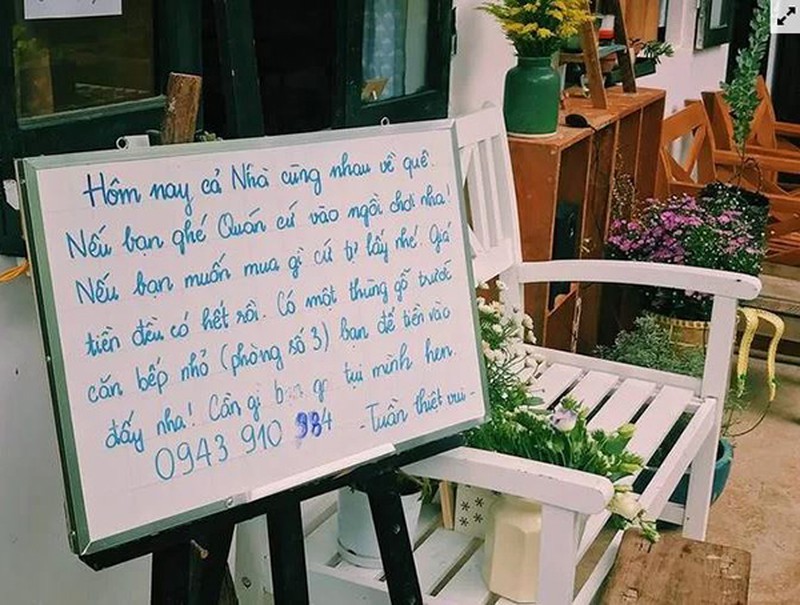 Hôm nay cả Nhà cùng nhau về quê.
Nếu bạn ghé Quán cứ vào ngồi chơi nha!
Nếu bạn muốn mua gì cứ tự lấy nhé. Giá
tiền đều có hết rồi. Có một thùng gỗ trước
căn bếp nhỏ (phòng số 3) bạn để tiền vào
đấy nha! Cần gì bạn gọi tụi mình hen.
0943 910 984 - Tuấn thiệt vui -